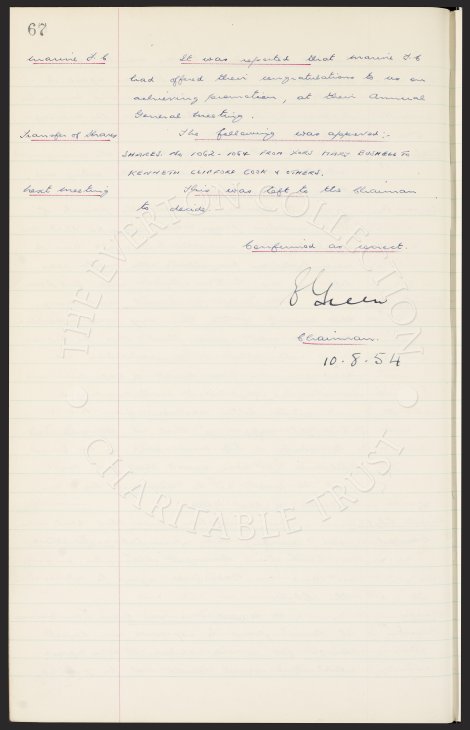 67
Marine F.C It was reported that Marine F.C
had offered their congratulations to us on
achieving promotion, at their Annual
General Meeting.
Transfer of Shares The following was approved:-
SHARES. No 1062-1064 FROM EXORS MARY BUSHELL TO
KENNETH CLIFFORD COOK & OTHERS.
Next Meeting This was left to the Chairman
to decide.
Confirmed as correct.
E Green
Chairman.
10.8.54
THE EVERTON COLLECTION
CHARITABLE TRUST